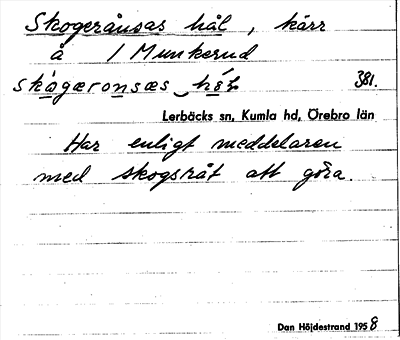 Skogerånsas hål, kärr
å 1 Munkerud
skågæronsæs hål 381.
Lerbäcks sn, Kumla hd, Örebro län
Har enligt meddelaren
med skogsråt att göra.
Dan Höjdestrand 1958